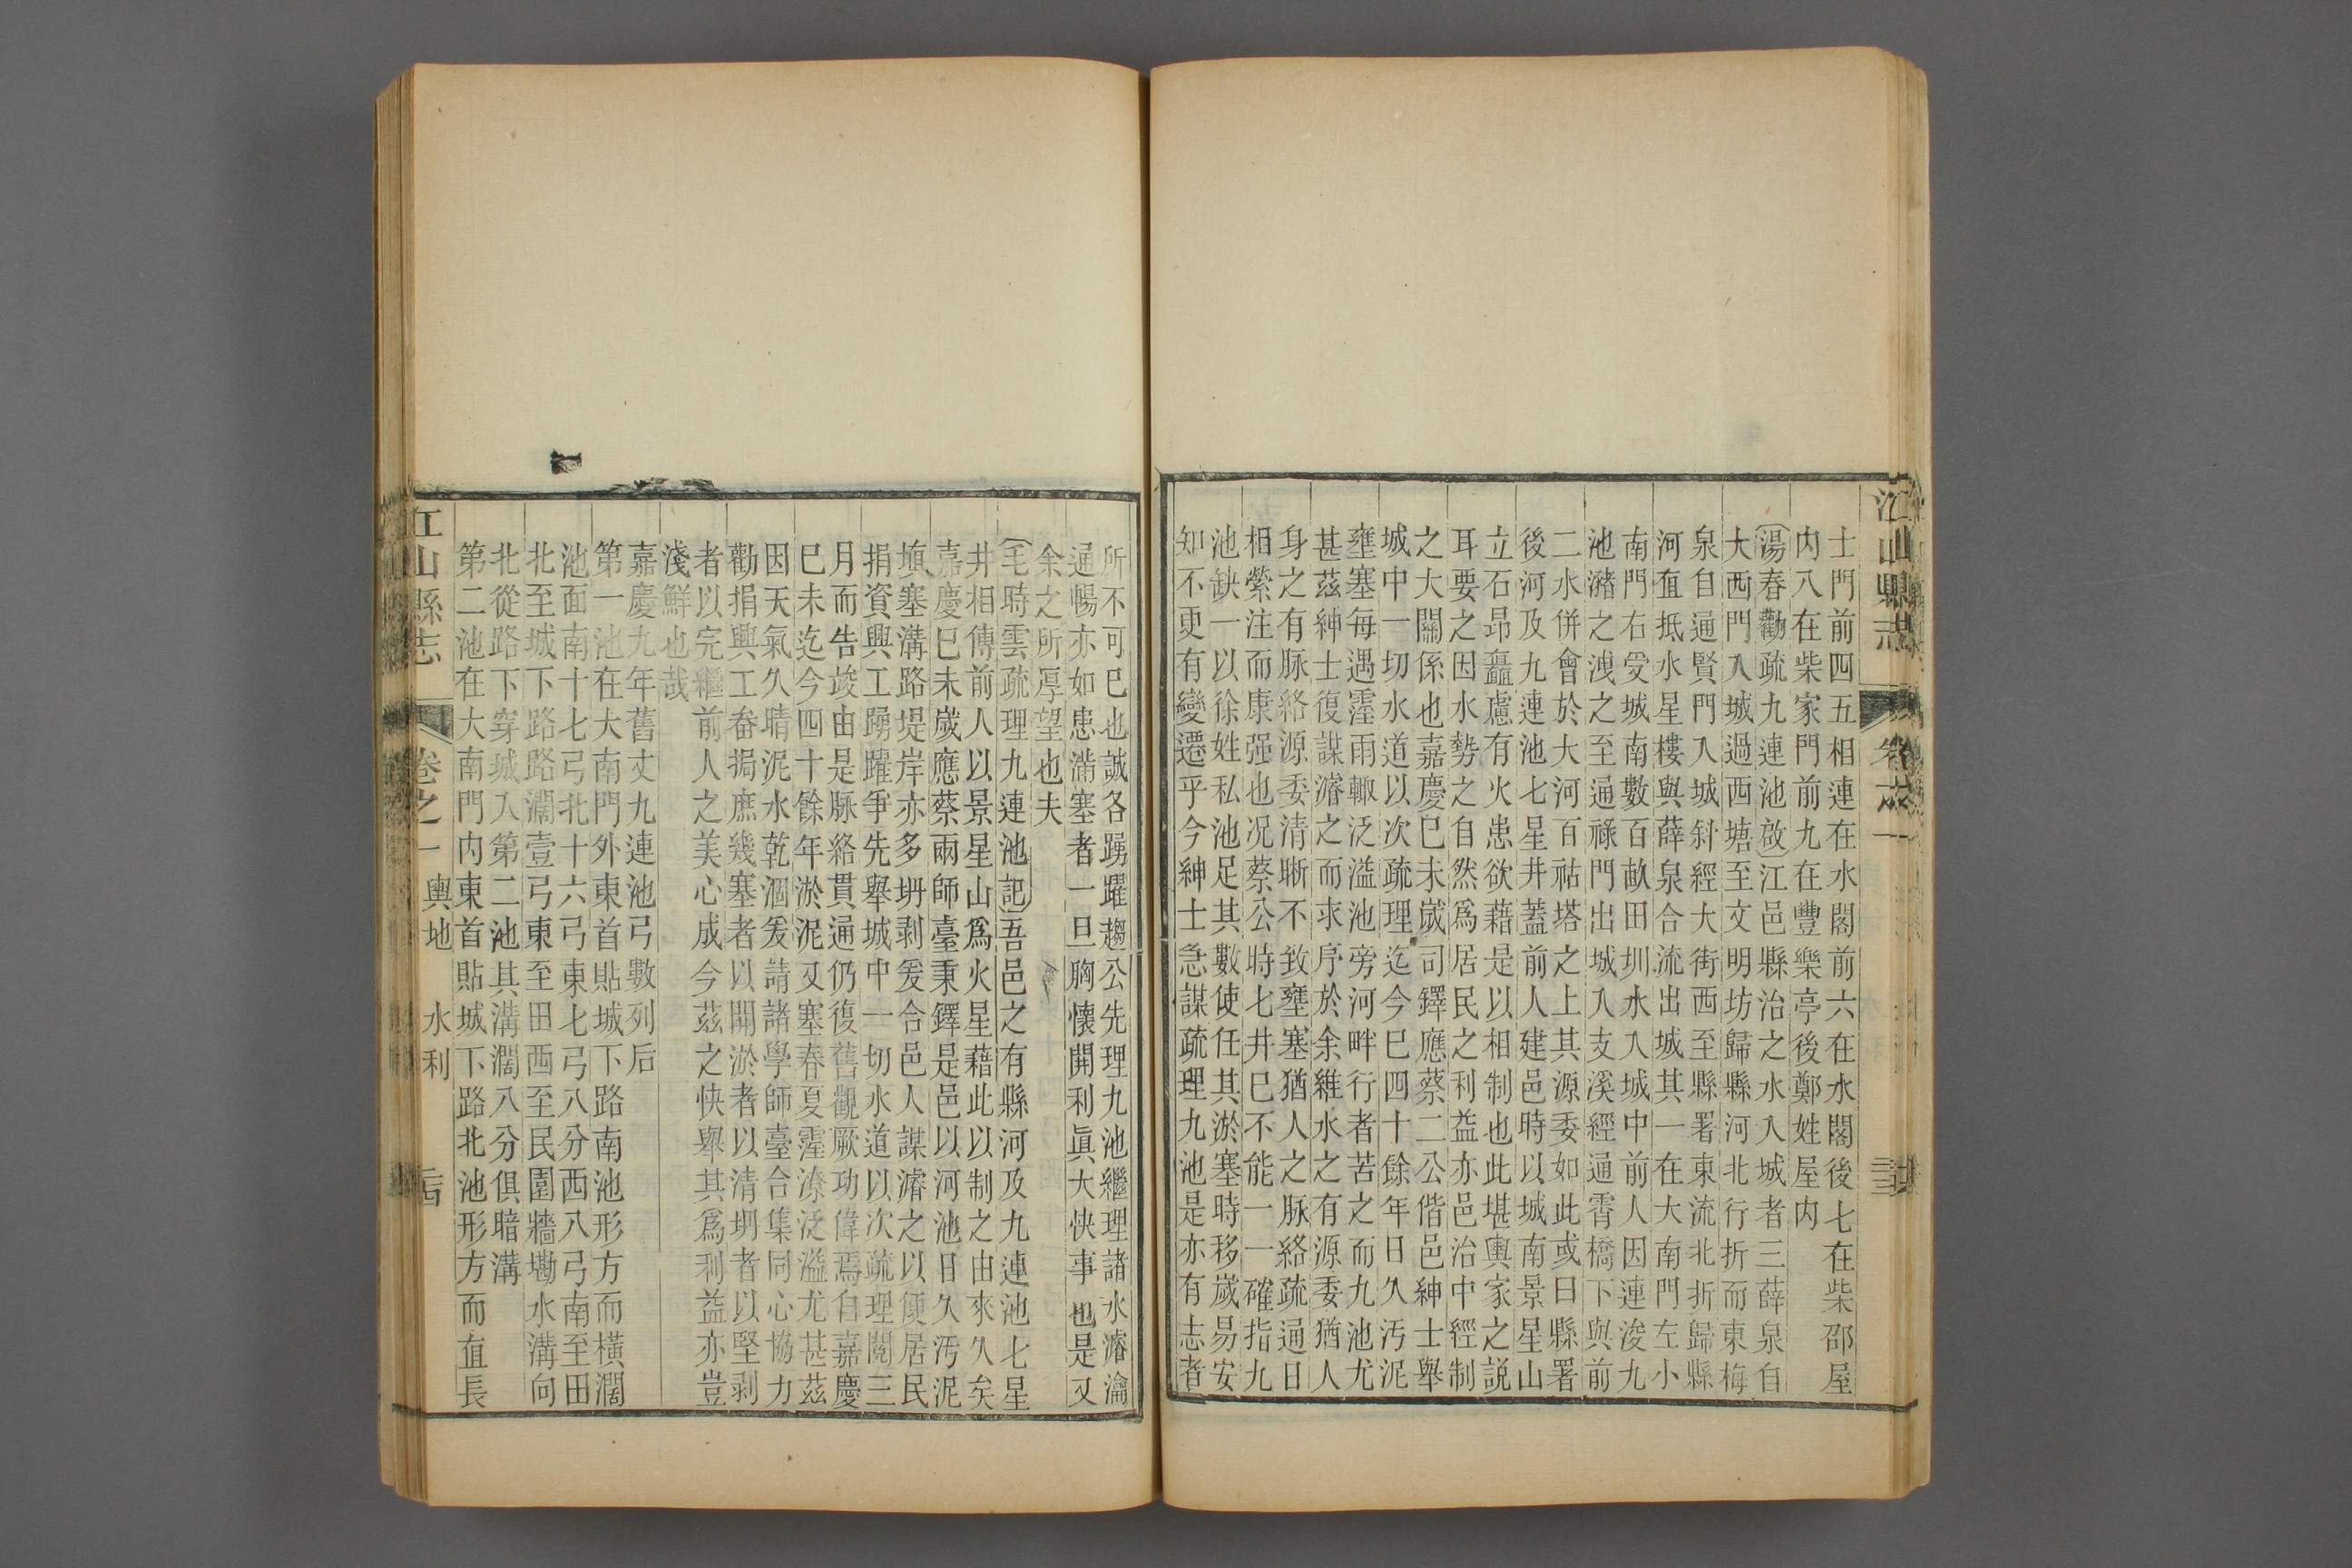 江山縣志
士門前四五相連在水閣前六在水閣後七在柴邵屋
内八在柴家門前九在豐樂亭後鄭姓屋内
湯春勸疏九連池啟江邑縣治之水入城者三薛泉自
大西門入城過西塘至文明坊歸縣河北行折而東梅
泉自通賢門入城斜經大街西至縣署東流北折歸縣
河直抵水星樓與薛泉合流出城其一在大南門左小
南門右受城南數百畝田圳水入城中前人因連浚九
池瀦之洩之至通祿門出城入支溪經通霄橋下與前
二水併會於大河百祜塔之上其源委如此或曰縣署
後河及九連池七星井蓋前人建邑時以城南景星山
立石昂矗慮有火患欲藉是以相制也此堪輿家之説
耳要之因水勢之自然爲居民之利益亦邑治中經制
之大關係也嘉慶巳未歲司鐸應蔡二公偕邑紳士舉
城中一切水道以次疏理迄今巳四十餘年日久汚泥
壅塞每遇霪雨輙泛溢池旁河畔行者苦之而九池尤
甚茲紳士復謀濬之而求序於余維水之有源委猶人
身之有脉絡源委清晰不致壅塞猶人之脉絡疏通日
相縈注而康强也况蔡公時七井巳不能一一確指九
池缺一以徐姓私池足其數使任其淤塞時移歲易安
知不更有變遷乎今紳士急謀疏理九池是亦有志者
所不可巳也誠各踴躍趨公先理九池繼理諸水濬瀹
通暢亦如患滿塞者一旦胸懷開利眞大快事也是又
余之所厚望也夫
毛時雲疏理九連池記吾邑之有縣河及九連池七星
井相傳前人以景星山爲火星藉此以制之由來久矣
嘉慶巳未歲應蔡兩師臺秉鐸是邑以河池日久汚泥
塡塞溝路堤岸亦多坍剥爰合邑人謀濬之以便居民
捐資興工踴躍爭先舉城中一切水道以次疏理閲三
月而告竣由是脉絡貫通仍復舊觀厥功偉焉自嘉慶
巳未迄今四十餘年淤泥又塞春夏霪潦泛溢尤甚茲
因天氣久晴泥水乾涸爰請諸學師臺合集同心協力
勸捐興工畚挶庶幾塞者以開淤者以清坍者以堅剥
者以完繼前人之美心成今茲之快舉其爲利益亦豈
淺鮮也哉
嘉慶九年舊丈九連池弓數列后
第一池在大南門外東首貼城下路南池形方而橫濶
池面南十七弓北十六弓東七弓八分西八弓南至田
北至城下路路濶壹弓東至田西至民園牆墈水溝向
北從路下穿城入第二池其溝濶八分俱暗溝
第二池在大南門内東首貼城下路北池形方而直長
江山縣志
卷之一
輿地
水利